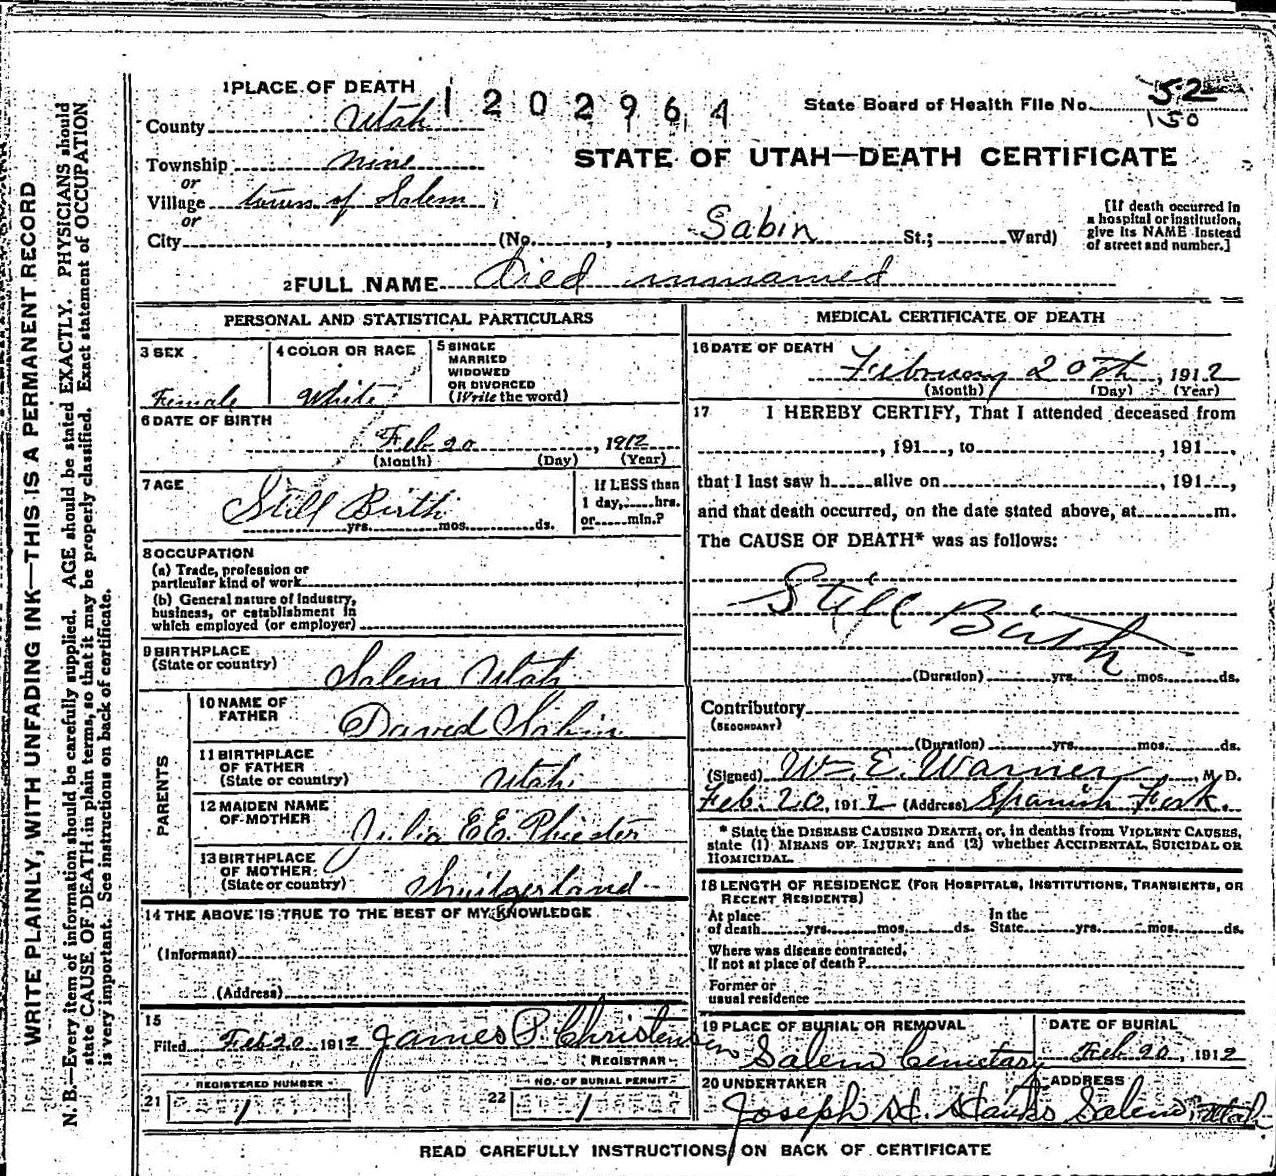 WRITE PLAINLY, WITH UNFADING INK—THIS IS A PERMANENT RECORD
N. B.—Every item of information should be carefully supplied. AGE should be stated EXACTLY. PHYSICIANS should
state CAUSE OF DEATH in plain terms, so that it may be properly classified. Exact statement of OCCUPATION
is very important. See instructions on back of certificate.
1 PLACE OF DEATH
1202964
State Board of Health File No. 52
150
County Utah
STATE OF UTAH—DEATH CERTIFICATE
Township nine
or
Village town of Salem
or
City (No. , Sabin St.; Ward)
[If death occurred in
a hospital or institution,
give its NAME instead
of street and number.]
2 FULL NAME Died unnamed
PERSONAL AND STATISTICAL PARTICULARS
3 SEX
Female
4 COLOR OR RACE
White
5 SINGLE
MARRIED
WIDOWED
OR DIVORCED
(Write the word)
6 DATE OF BIRTH
Feb 20, 1912
(Month) (Day) (Year)
7 AGE
Still Birth
yrs. mos. ds.
If LESS than
1 day, hrs.
or min.?
8 OCCUPATION
(a) Trade, profession or
particular kind of work
(b) General nature of industry,
business, or establishment in
which employed (or employer)
9 BIRTHPLACE
(State or country)
Salem Utah
PARENTS
10 NAME OF
FATHER
David Sabin
11 BIRTHPLACE
OF FATHER
(State or country)
Utah
12 MAIDEN NAME
OF MOTHER
Julia E E.
13 BIRTHPLACE
OF MOTHER
(State or country)
Switzerland
14 THE ABOVE IS TRUE TO THE BEST OF MY KNOWLEDGE
(Informant)
(Address)
15
Filed Feb 20 1912 James P Christensen
REGISTRAR
REGISTERED NUMBER
21 1
NO. OF BURIAL PERMIT
22 1
MEDICAL CERTIFICATE OF DEATH
16 DATE OF DEATH
February 20th, 1912
(Month) (Day) (Year)
17 I HEREBY CERTIFY, That I attended deceased from
, 191 , to , 191 ,
that I last saw h alive on , 191 ,
and that death occurred, on the date stated above, at m.
The CAUSE OF DEATH* was as follows:
Still Birth
(Duration) yrs. mos. ds.
Contributory
(SECONDARY)
(Duration) yrs. mos. ds.
(Signed) Wm. E. Warner, M D.
Feb. 20, 1912 (Address) Spanish Fork.
* State the DISEASE CAUSING DEATH, or, in deaths from VIOLENT CAUSES,
state (1) MEANS OF INJURY; and (2) whether ACCIDENTAL, SUICIDAL OR
HOMICIDAL.
18 LENGTH OF RESIDENCE (FOR HOSPITALS, INSTITUTIONS, TRANSIENTS, OR
RECENT RESIDENTS)
At place
of death yrs. mos. ds.
In the
State yrs. mos. ds.
Where was disease contracted,
If not at place of death?
Former or
usual residence
19 PLACE OF BURIAL OR REMOVAL
Salem Cemetary
DATE OF BURIAL
Feb 20, 1912
20 UNDERTAKER
Joseph H. Hanks
ADDRESS
Salem, Utah
READ CAREFULLY INSTRUCTIONS ON BACK OF CERTIFICATE